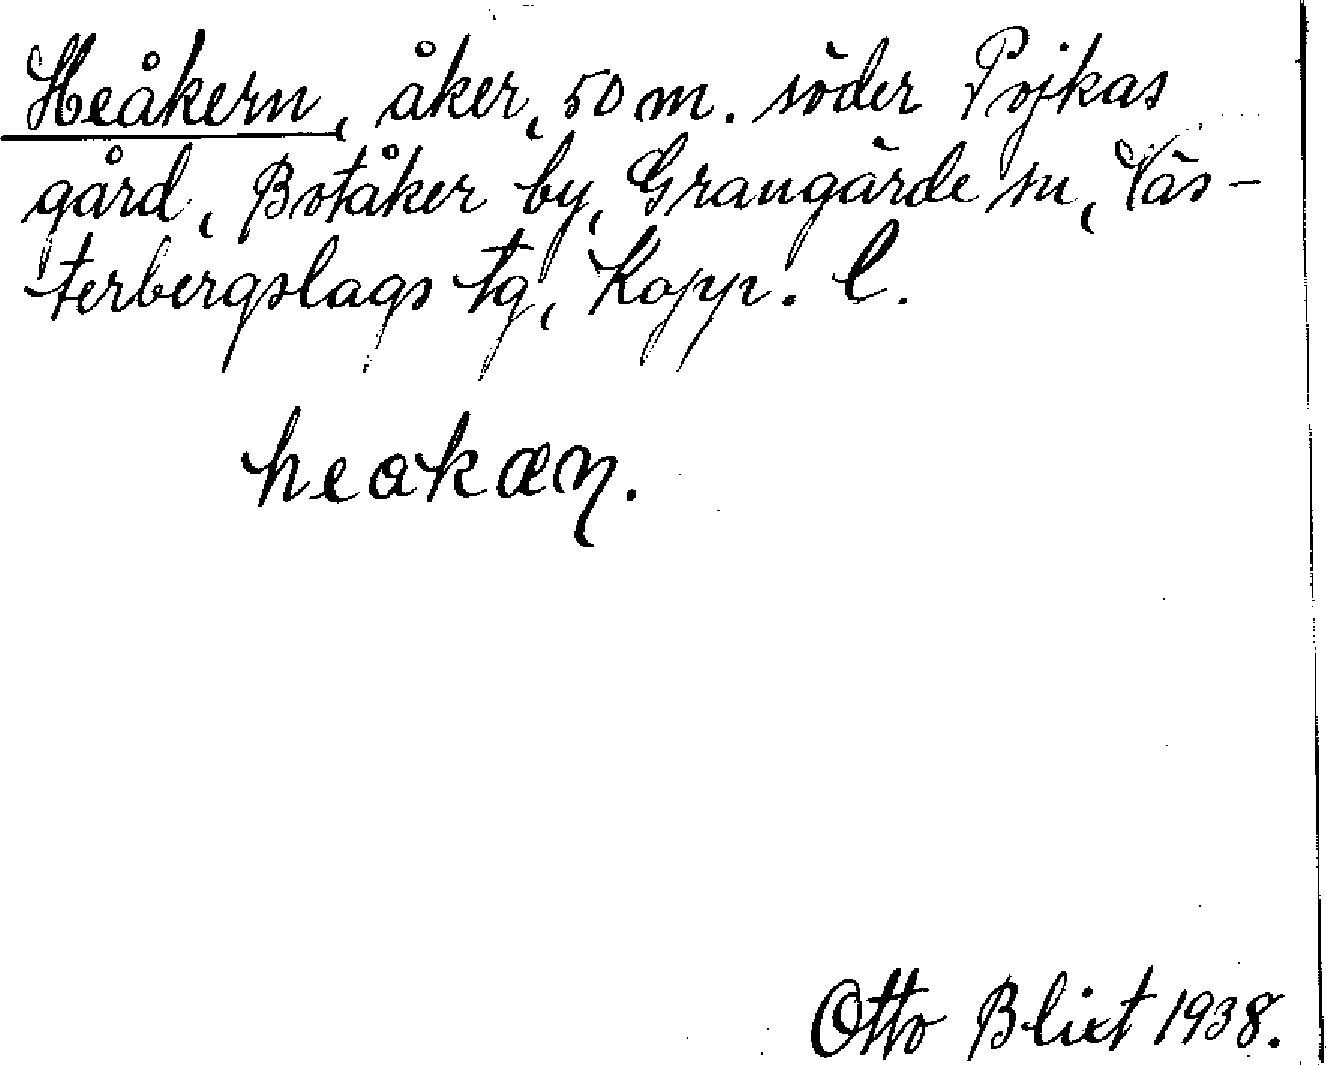 Heåkern, åker, 50 m. söder Pojkas
gård, Botåker by, Grangärde sn, Väs-
terbergslags tg, Kopp. l.
heakæn.
Otto Blixt 1938.